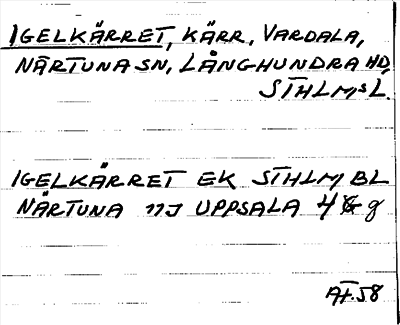 IGELKÄRRET, KÄRR, VARDALA,
NÄRTUNA SN, LÅNGHUNDRA HD,
STHLMS L.
IGELKÄRRET EK STHLM BL
NÄRTUNA 11J UPPSALA 4 g
ÅF.58